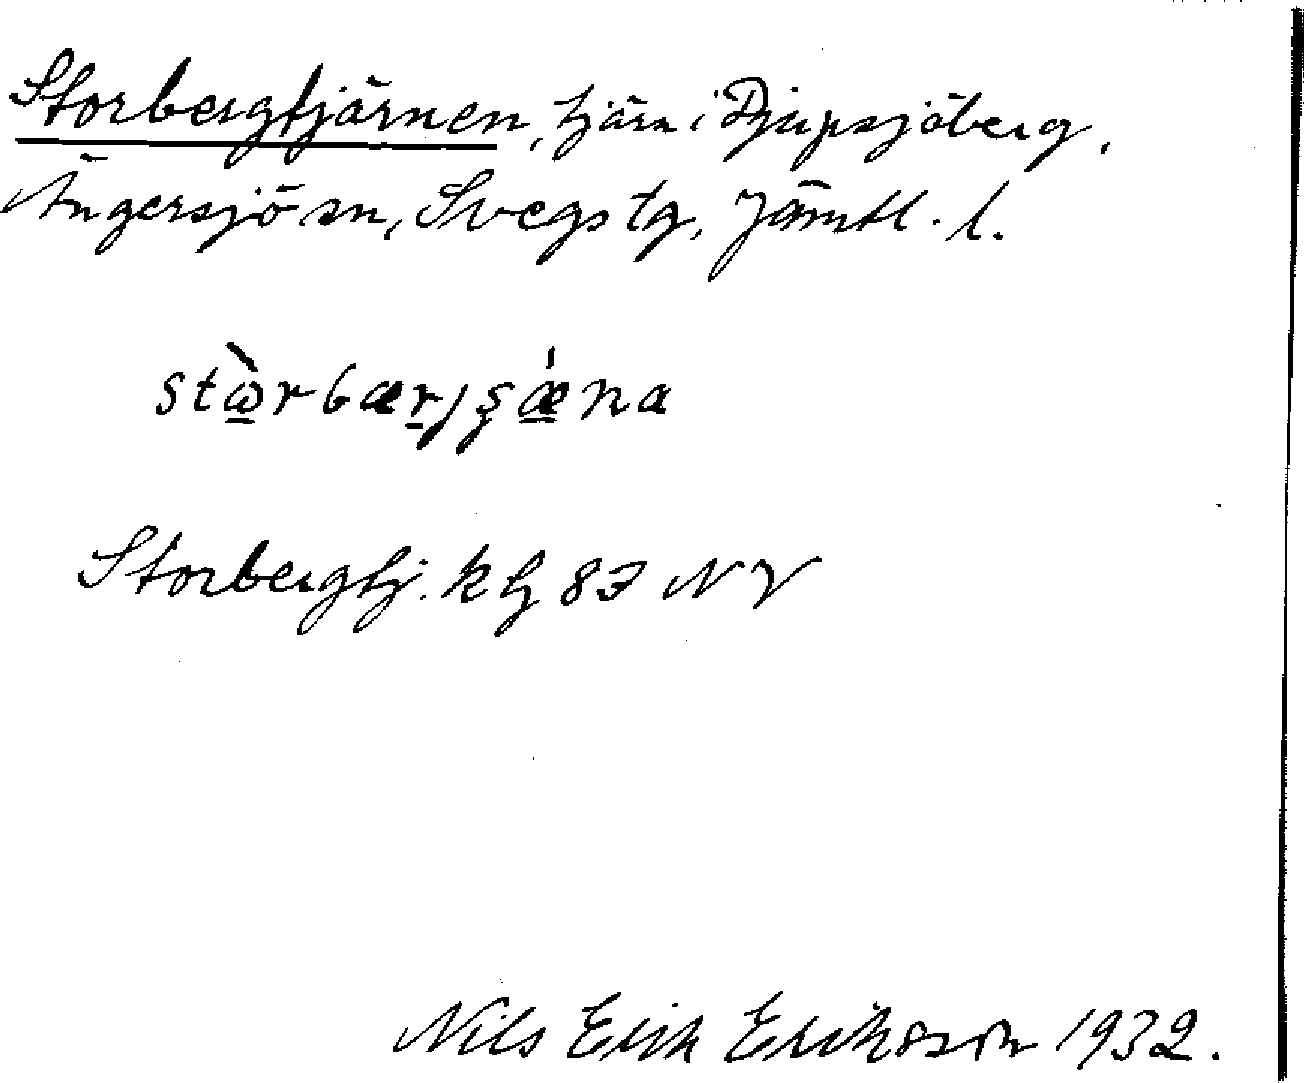 Storbergtjärnen, tjärn i Djupsjöberg,
Ängersjö sn, Svegs tg, Jämtl. l.
stὼ̲rbær̲jʂǽ̲na
Storbergtj. k bl 83 NV
Nils Erik Eriksson 1932.